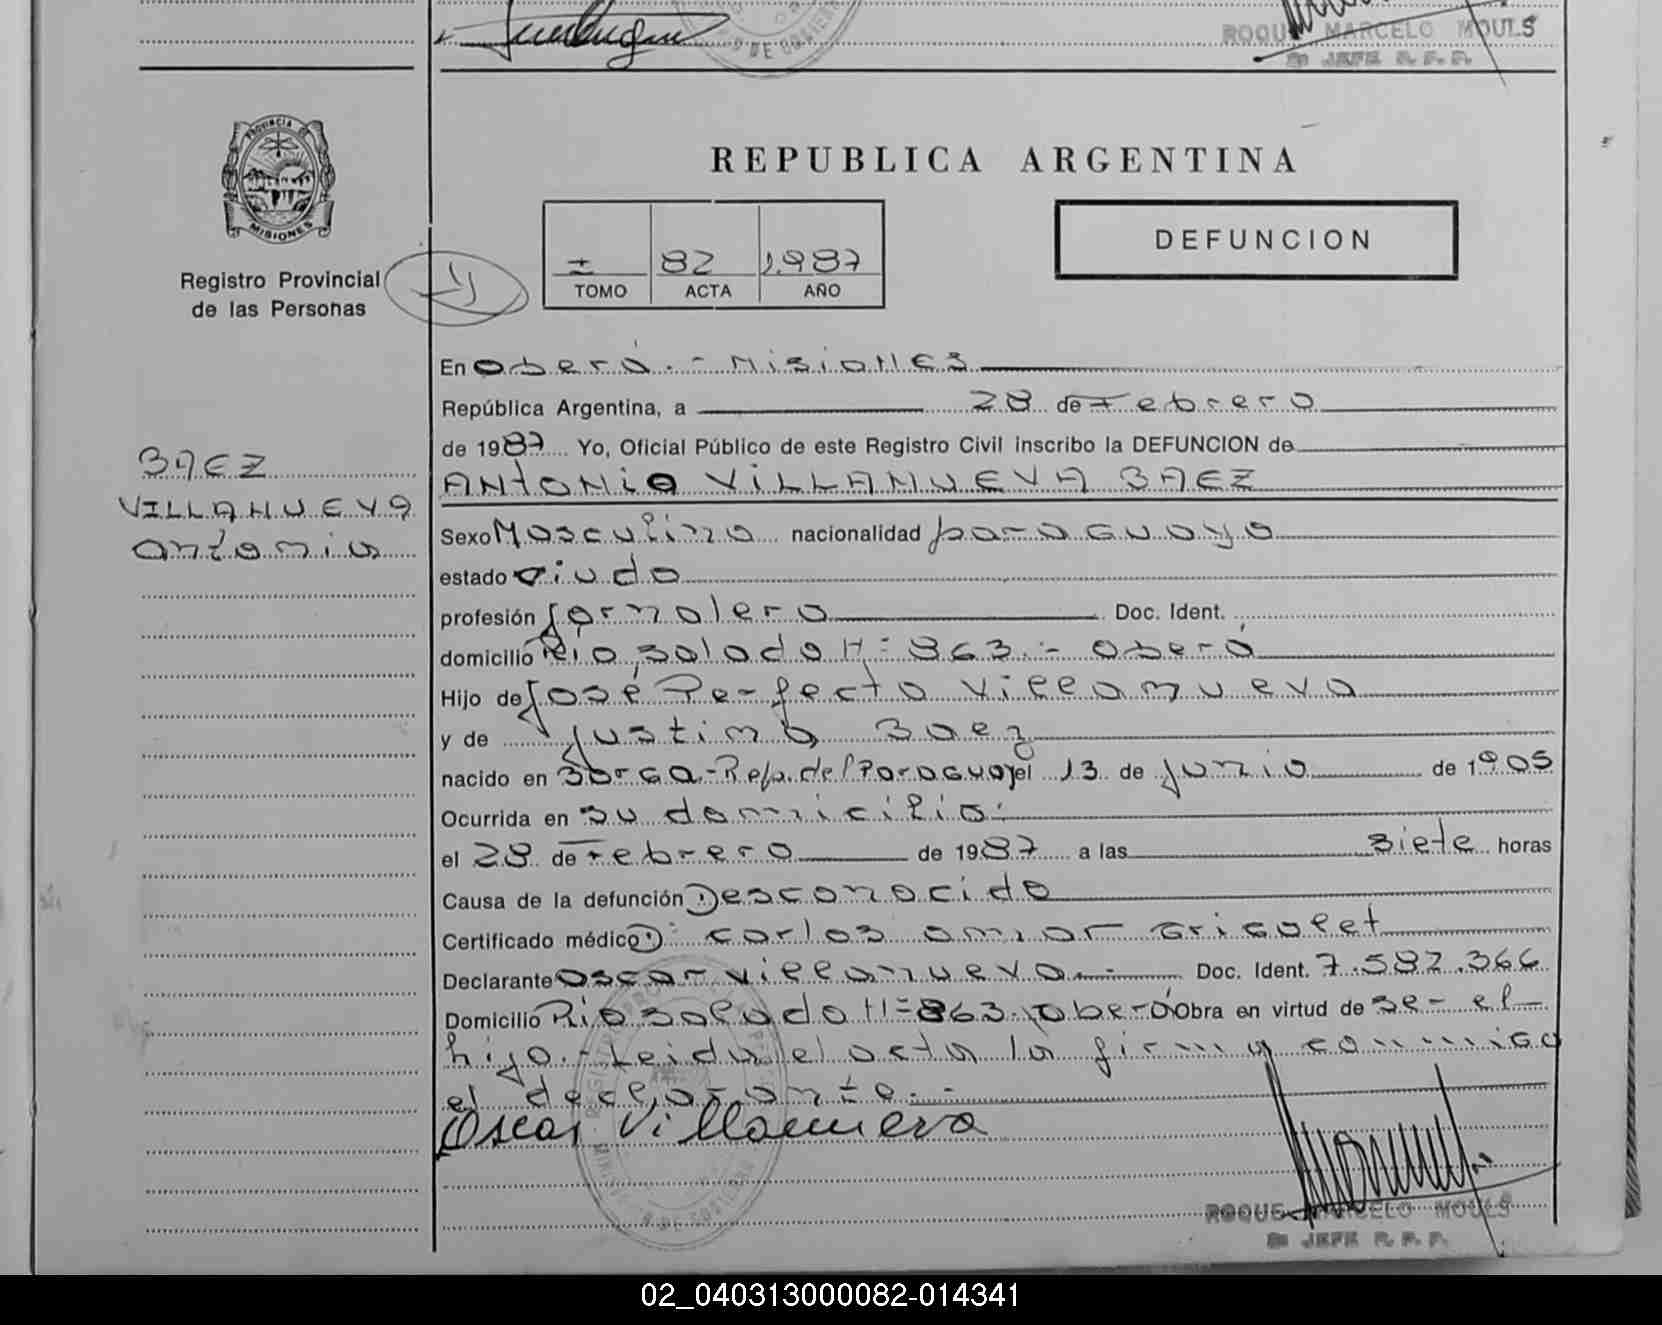 ROQUE MARCELO MOULS
JEFE R. P. P.
PROVINCIA DE
MISIONES
Registro Provincial
de las Personas
REPUBLICA ARGENTINA
I 82 1987
TOMO ACTA AÑO
DEFUNCION
BAEZ
VILLANUEVA
Antonio
En Oberá.- Misiones
República Argentina, a 28 de Febrero
de 1987 Yo, Oficial Público de este Registro Civil inscribo la DEFUNCION de
ANTONIO VILLANUEVA BAEZ
Sexo Masculino nacionalidad paraguaya
estado viudo
profesión jornalero Doc. Ident.
domicilio Río Salado N= 863.- Oberá
Hijo de José Perfecto Villanueva
y de Justina Baez
nacido en Rep. del Paraguay el 13 de junio de 1905
Ocurrida en su domicilio:
el 28 de Febrero de 1987 a las siete horas
Causa de la defunción Desconocido
Certificado médico D: Carlos Omar Grigolet
Declarante Oscar Villanueva.- Doc. Ident. 7.582.366
Domicilio Río Salado N=863. Oberá Obra en virtud de Se- el
hijo.- Leida el acta la firma conmigo
el declarante.-
Oscar Villanueva
ROQUE MARCELO MOULS
JEFE R. P. P.
02_040313000082-014341